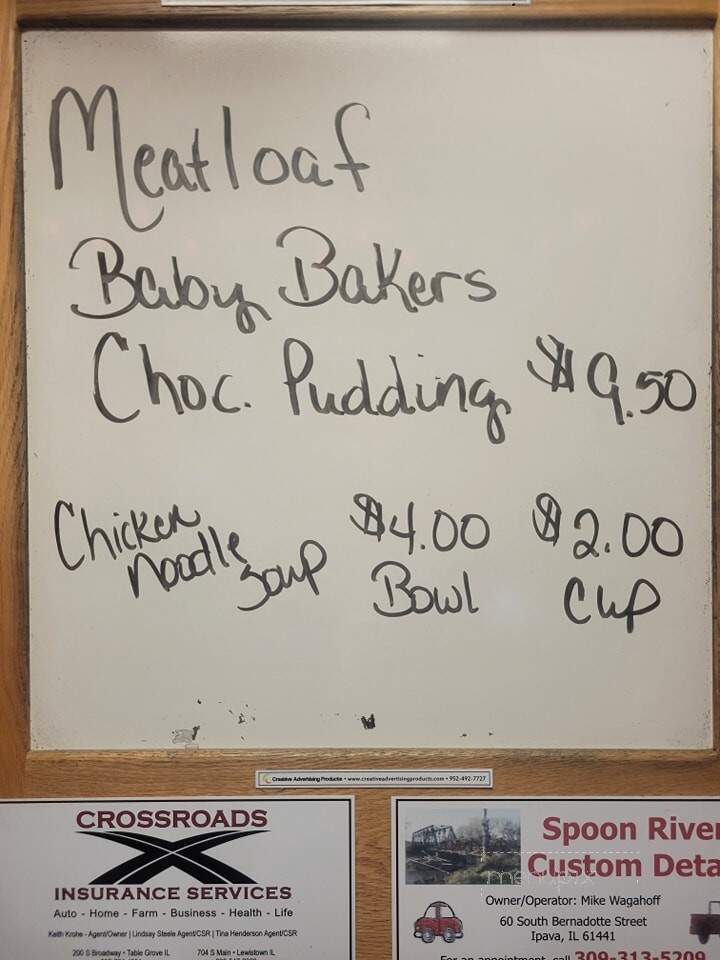 Meatloaf
Baby Bakers
Choc. Pudding $9.50
Chicken Noodle Soup $4.00 Bowl $2.00 Cup
Creative Advertising Products • www.creativeadvertisingproducts.com • 952-492-7727
CROSSROADS
INSURANCE SERVICES
Auto - Home - Farm - Business - Health - Life
Keith Krohe - Agent/Owner | Lindsay Steele Agent/CSR | Tina Henderson Agent/CSR
200 S Broadway • Table Grove IL 704 S Main • Lewistown IL
Spoon River
Custom Deta
Owner/Operator: Mike Wagahoff
60 South Bernadotte Street
Ipava, IL 61441
For an appointment, call 309-313-5209